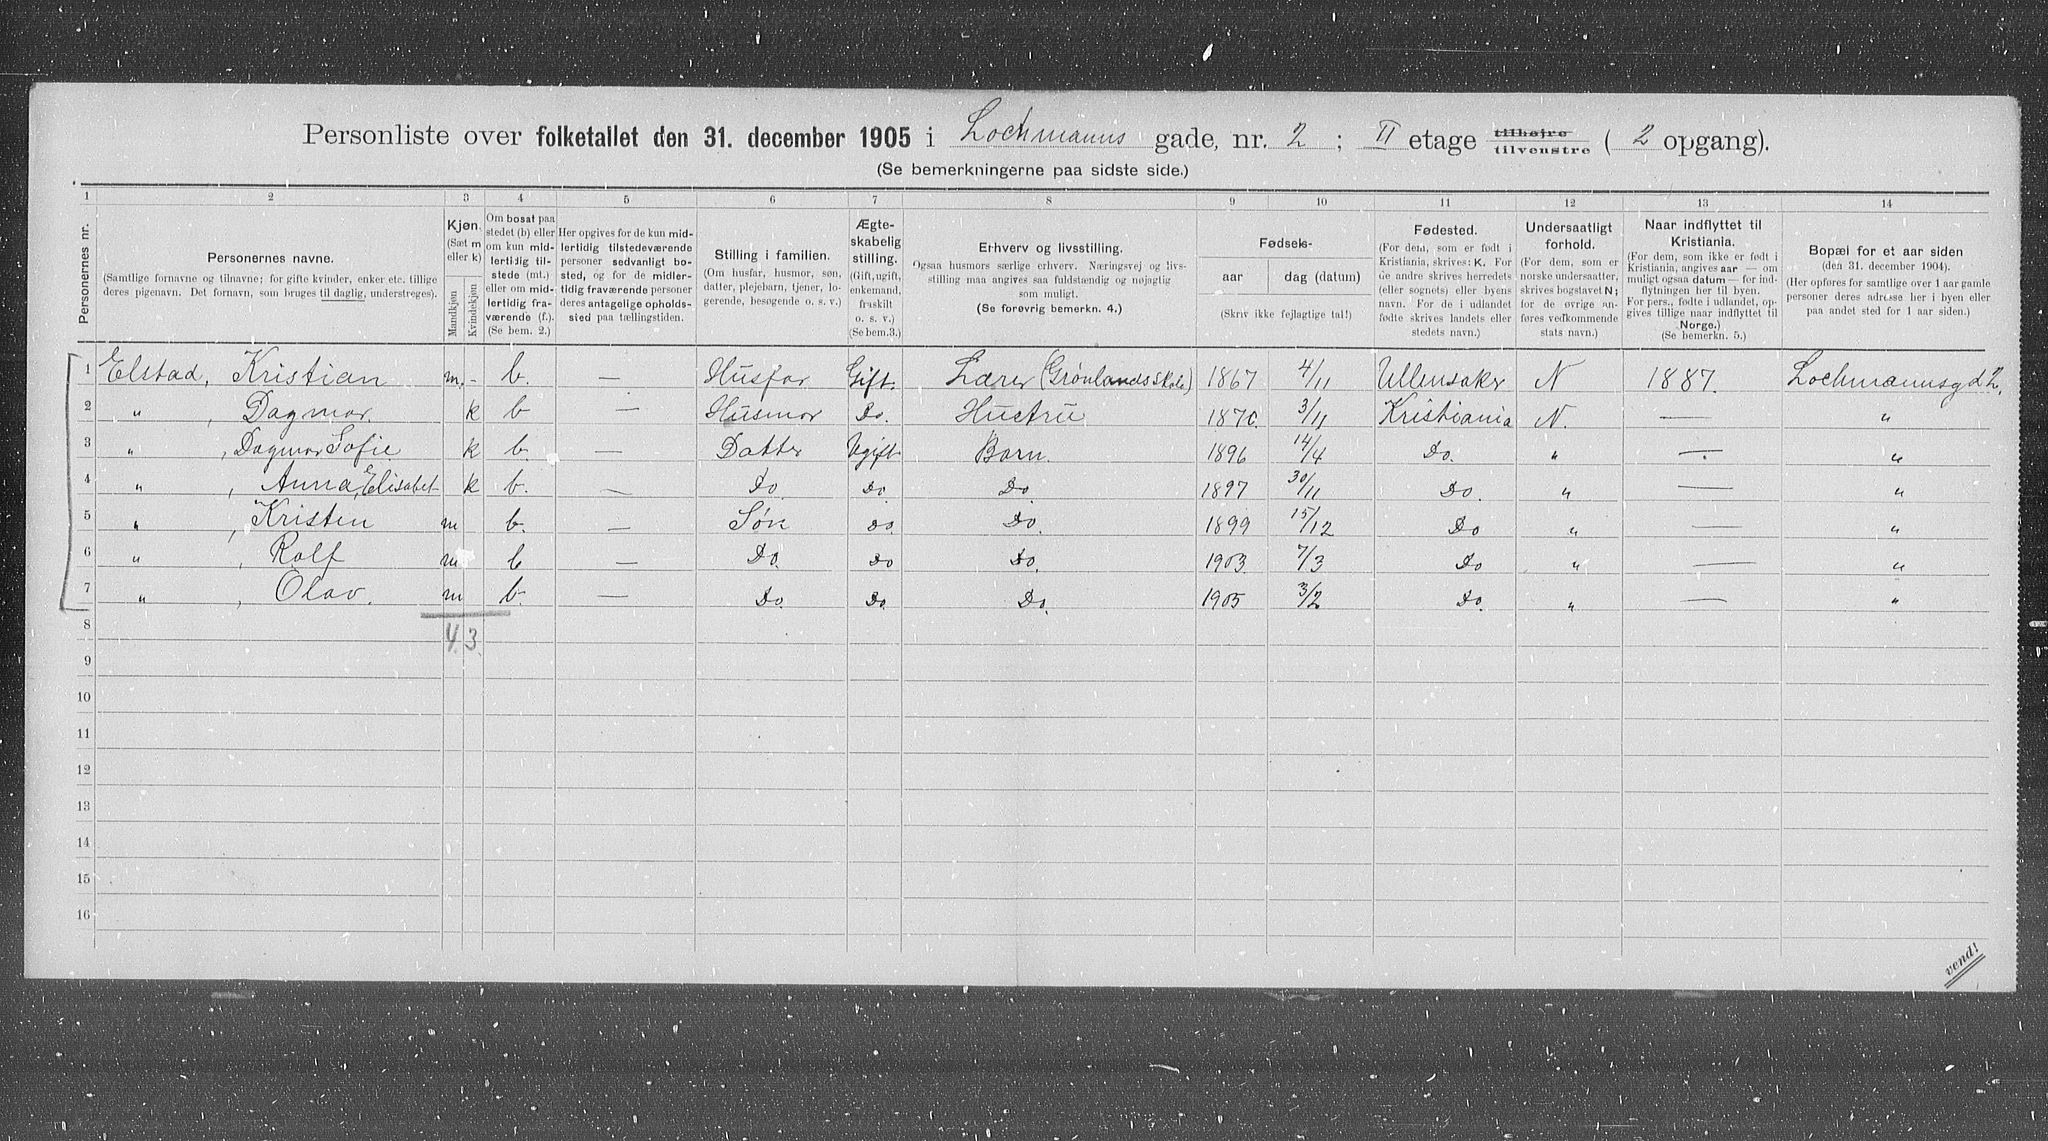 Personliste over folketallet den 31. december 1905 i Lochmanns gade, nr. 2 ; II etage tilhøjre tilvenstre ( 2 opgang).
(Se bemerkningerne paa sidste side.)
1 2 3 4 5 6 7 8 9 10 11 12 13 14
Personernes nr.
Personernes navne.
(Samtlige fornavne og tilnavne; for gifte kvinder, enker etc. tillige
deres pigenavn. Det fornavn, som bruges til daglig, understreges).
Kjøn.
(Sæt m
eller k)
Mandkjøn
Kvindekjøn
Om bosat paa
stedet (b) eller
om kun mid-
lertidig til-
stede (mt.)
eller om mid-
lertidig fra-
værende (f.).
(Se bem. 2.)
Her opgives for de kun mid-
lertidig tilstedeværende
personer sedvanlig bo-
sted, og for de midler-
tidig fraværende personer
deres antagelige opholds-
sted paa tællingstiden.
Stilling i familien.
(Om husfar, husmor, søn,
datter, plejebarn, tjener, lo-
gerende, besøgende o. s. v.)
Ægte-
skabelig
stilling.
(Gift, ugift,
enkemand,
fraskilt
o. s. v.)
(Se bem.3.)
Erhverv og livsstilling.
Ogsaa husmors særlige erhverv. Næringsvej og livs-
stilling maa angives saa fuldstændig og nøjagtig
som muligt.
(Se forøvrig bemerkn. 4.)
Fødsels-
aar
dag (datum)
(Skriv ikke fejlagtige tal!)
Fødested.
(For dem, som er født i
Kristiania, skrives: K. For
de andre skrives herredets
(eller sognets) eller byens
navn. For de i udlandet
fødte skrives landets eller
stedets navn.)
Undersaatligt
forhold.
(For dem, som er
norske undersaatter,
skrives bogstavet N;
for de øvrige an-
føres vedkommende
stats navn.)
Naar indflyttet til
Kristiania.
(For dem, som ikke er født i
Kristiania, angives aar — om
muligt ogsaa datum — for ind-
flytningen her til byen.
For pers., fødte i udlandet, op-
gives tillige naar indflyttet til
Norge.)
(Se bemerkn. 5.)
Bopæl for et aar siden
(den 31. december 1904).
(Her opføres for samtlige over 1 aar gamle
personer deres adresse her i byen eller
paa andet sted for 1 aar siden.)
1 Elstad, Kristian m. - b. — Husfar Gift. Lærer (Grønlandsskole) 1867 4/11 Ullensaker N 1887. Lochmannsgd 2.
2 " , Dagmar. k b — Husmor Do. Hustru 1870. 3/11 Kristiania N. — "
3 " , Dagmar Sofie k b. — Datter Ugift Barn. 1896 14/4 Do. " — "
4 " , Anna Elisabet k b. — Do. Do. Do. 1897 30/11 Do. " — "
5 " , Kristen m b. — Søn Do. Do. 1899 15/12 Do " — "
6 " , Rolf m b — Do. Do Do. 1903. 7/3 Do " — "
7 " , Olav. m b. — Do. Do. Do. 1905 3/2 Do. " — "
8 4. 3.
9
10
11
12
13
14
15
16
vend!